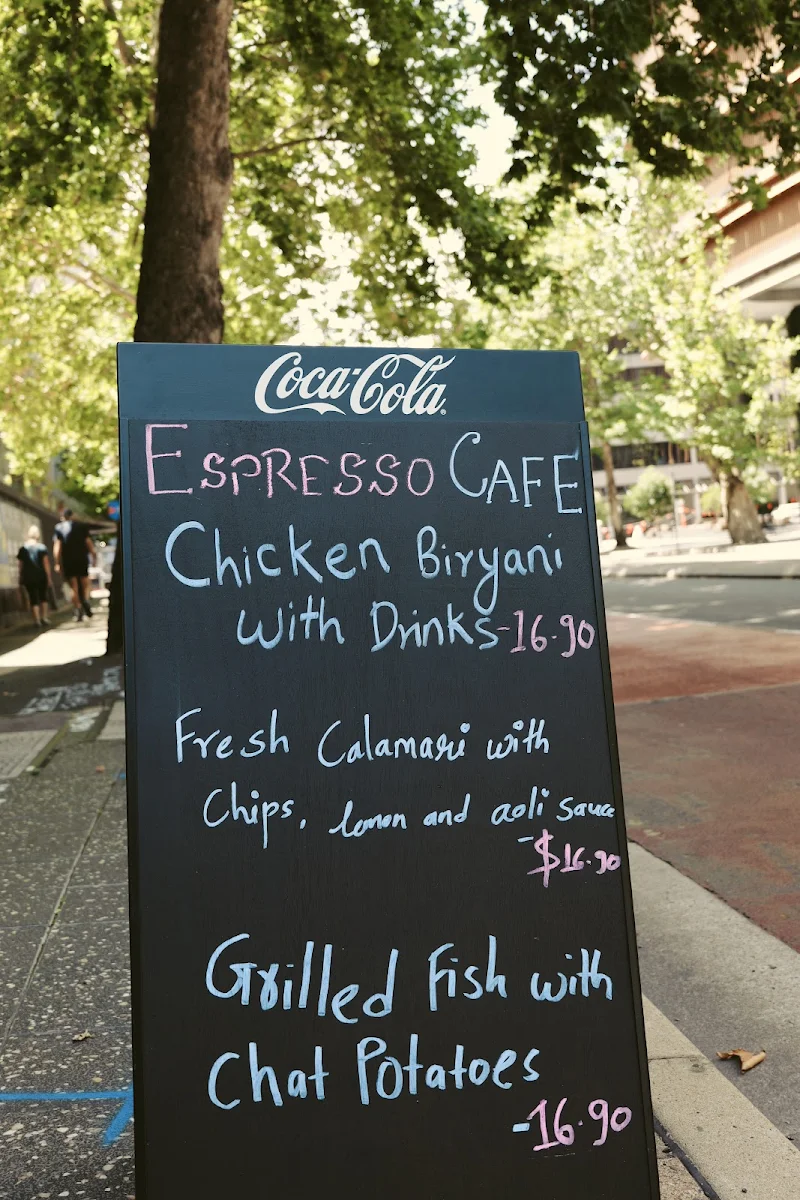 Coca-Cola
ESPRESSO CAFE
Chicken Biryani
with Drinks-16.90
Fresh Calamari with
Chips, lemon and aoli sauce
-$16.90
Grilled Fish with
Chat Potatoes
-16.90